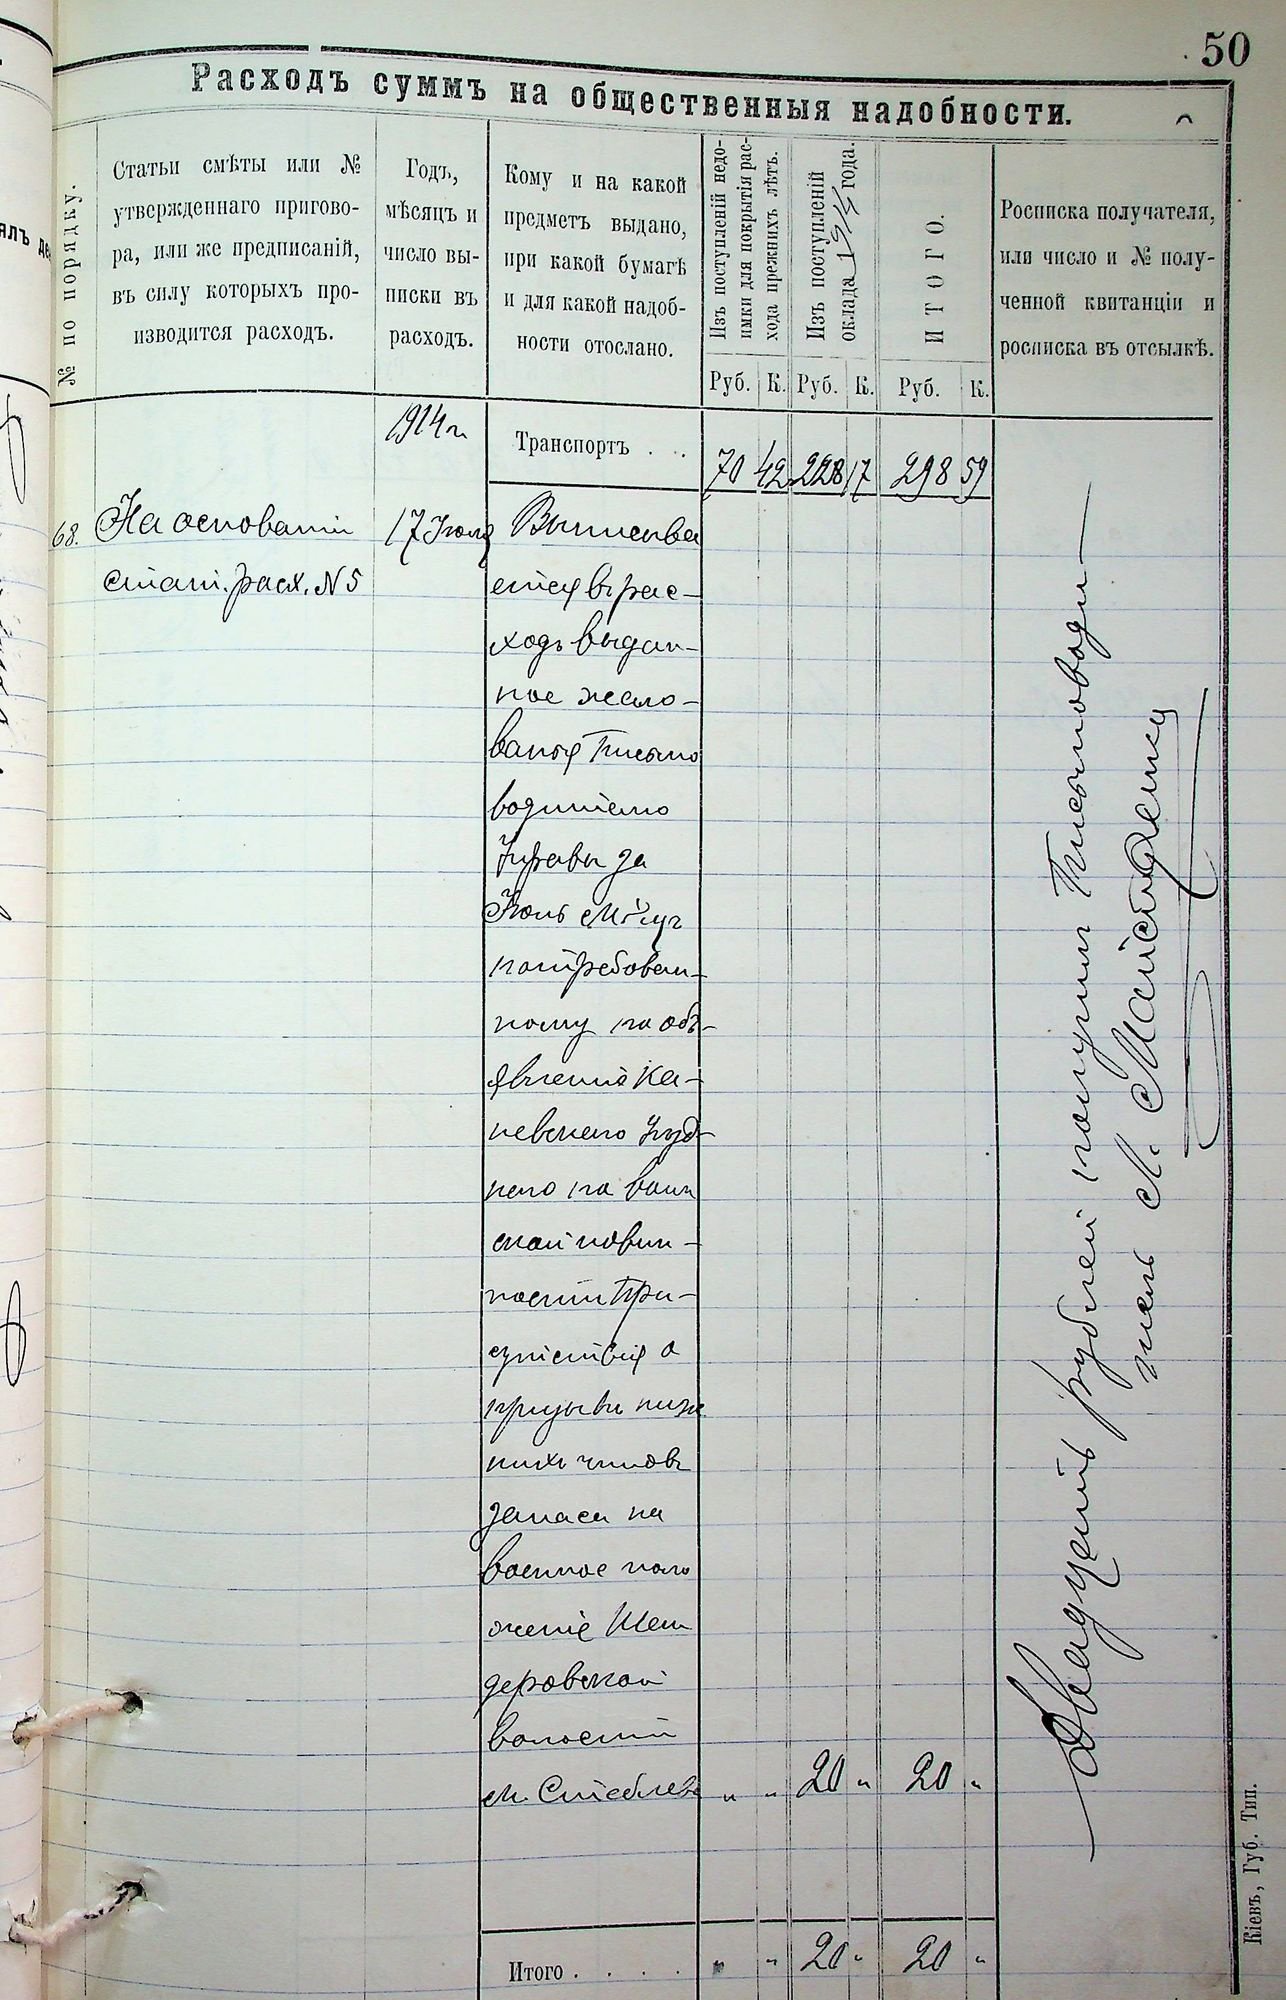 50
Расходъ суммъ на общественныя надобности.
№ по порядку.
Статьи смѣты или №
утвержденнаго пригово-
ра, или же предписаній,
въ силу которыхъ про-
изводится расходъ.
Годъ,
мѣсяцъ и
число вы-
писки въ
расходъ.
Кому и на какой
предметъ выдано,
при какой бумагѣ
и для какой надоб-
ности отослано.
Изъ поступленій недо-
имки для покрытія рас-
хода прежнихъ лѣтъ.
Изъ поступленій
оклада 1914 года.
ИТОГО.
Росписка получателя,
или число и № полу-
ченной квитанціи и
росписка въ отсылкѣ.
Руб. К. Руб. К. Руб. К.
1914 г.
Транспортъ . . 70 42 228 17 298 59
68. На основаніи 17 Іюля Выписыва
стат. расх. N 5 ется въ рас-
ходъ выдан-
ное жало-
ванья Письмо
водителю
Управы за
Іюль м-цъ
потребован-
ному по объ-
явленію Ка-
невскаго Уѣзд-
наго по воин
ской повин-
ности При-
сутствія о
призывѣ ниж
нихъ чиновъ
запаса на
военное поло
женіе Шен
деровской
волости
м. Стеблева " " 20 " 20 "
Двадцать рублей получил Письмоводи-
тель М.
Итого . . . . " " 20 " 20 "
Кіевъ, Губ. Тип.